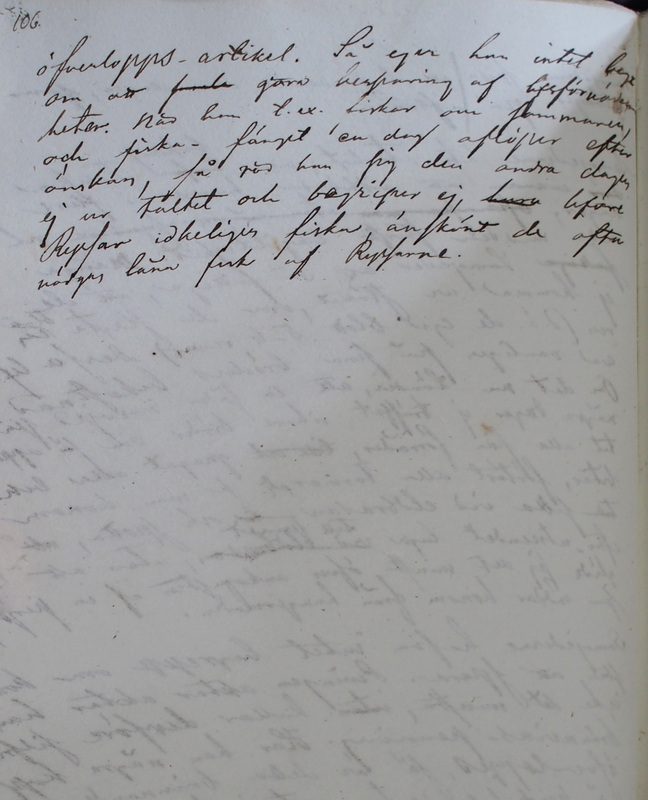 106.
öfverlopps-artikel. Så eger han intet begr
om att göra besparing af lifsförnöden
heter. När han t.ex. fiskar om sommaren,
och fiska-fånget en dag aflöper efter
önskan, så rör han sig den andra dagen
ej ur tältet och begriper ej hura hfvre
Ryssar idkeligen fiska, änskönt de ofta
nödgas låna fisk af Ryssarne.